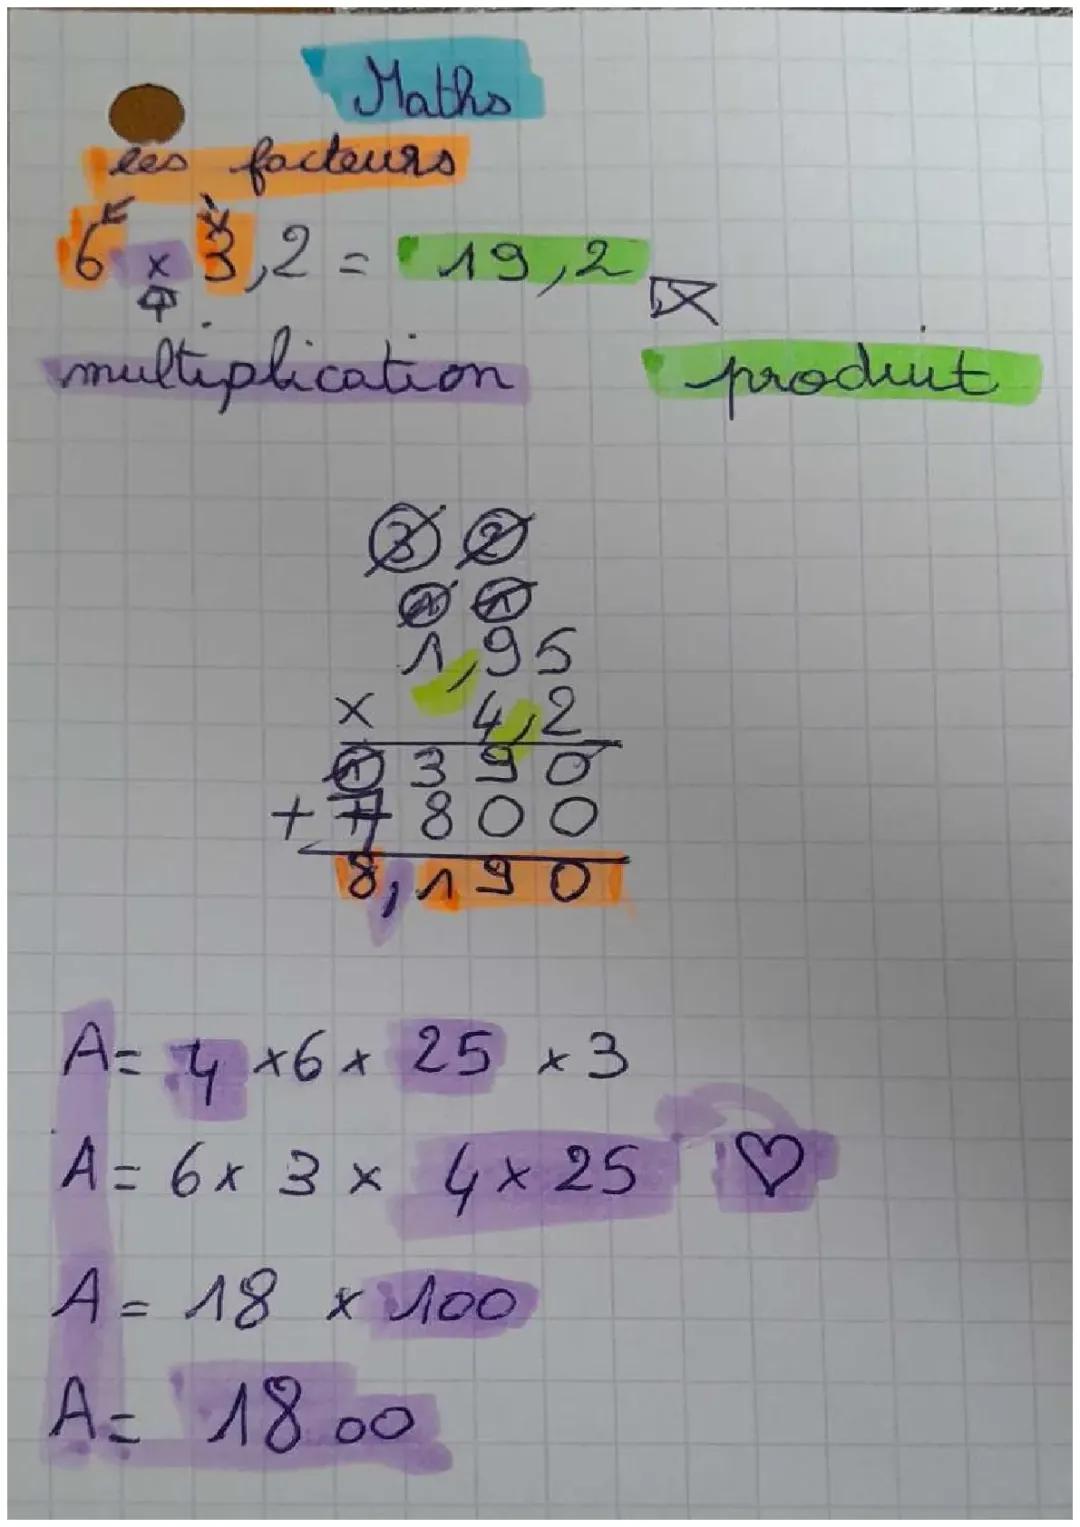 Maths
les facteurs
6 x 3,2 = 19,2
multiplication produit
3 2
1 1
1,95
x 4,2
1 390
+ 7 800
8,190
A = 4 x 6 x 25 x 3
A = 6 x 3 x 4 x 25 ♡
A = 18 x 100
A = 1800